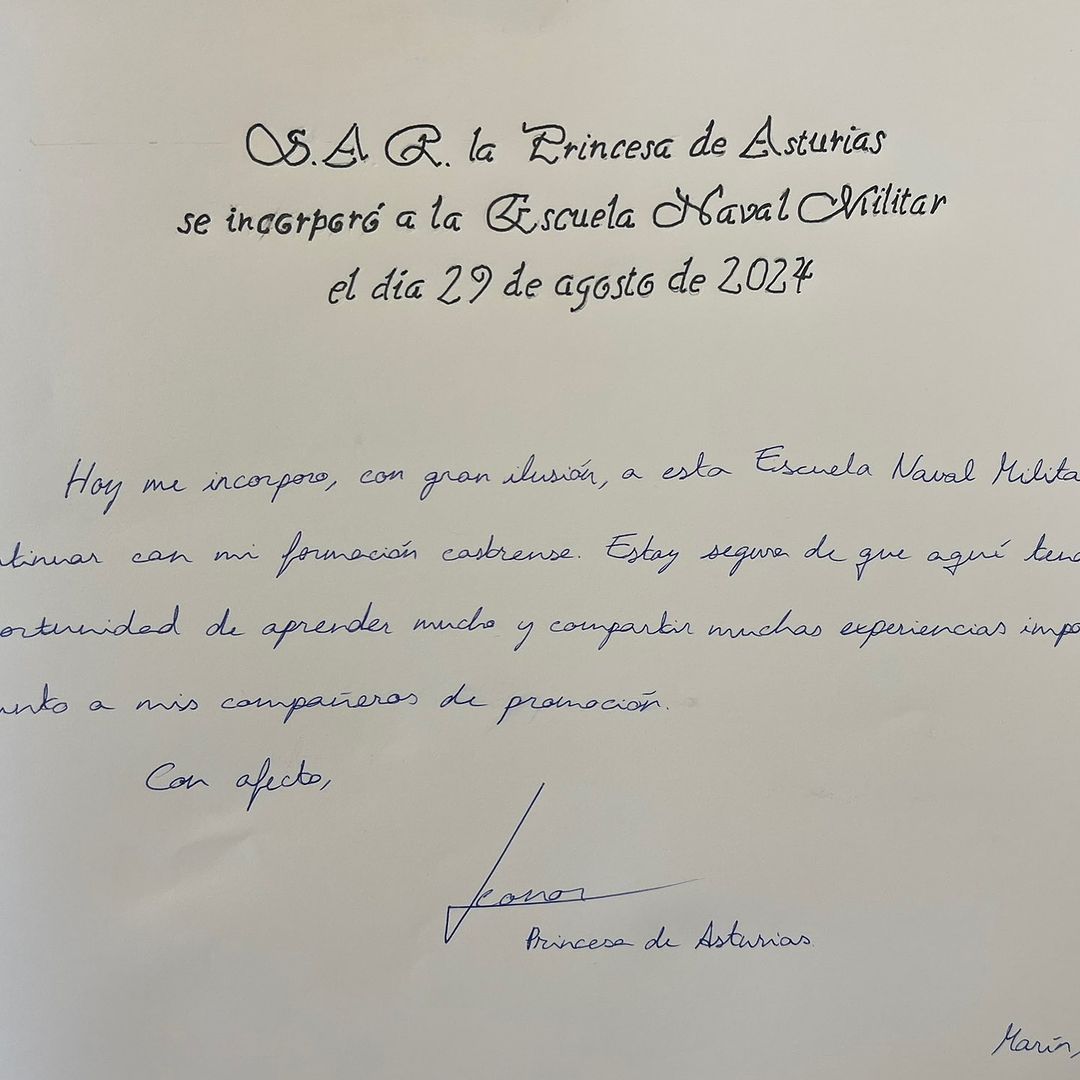 S.A.R. la Princesa de Asturias
se incorporó a la Escuela Naval Militar
el día 29 de agosto de 2024
Hoy me incorporo, con gran ilusión, a esta Escuela Naval Milita
ntinuar con mi formación castrense. Estoy segura de que aquí tend
ortunidad de aprender mucho y compartir muchas experiencias impo
unto a mis compañeros de promoción.
Con afecto,
Leonor
Princesa de Asturias
Marín,